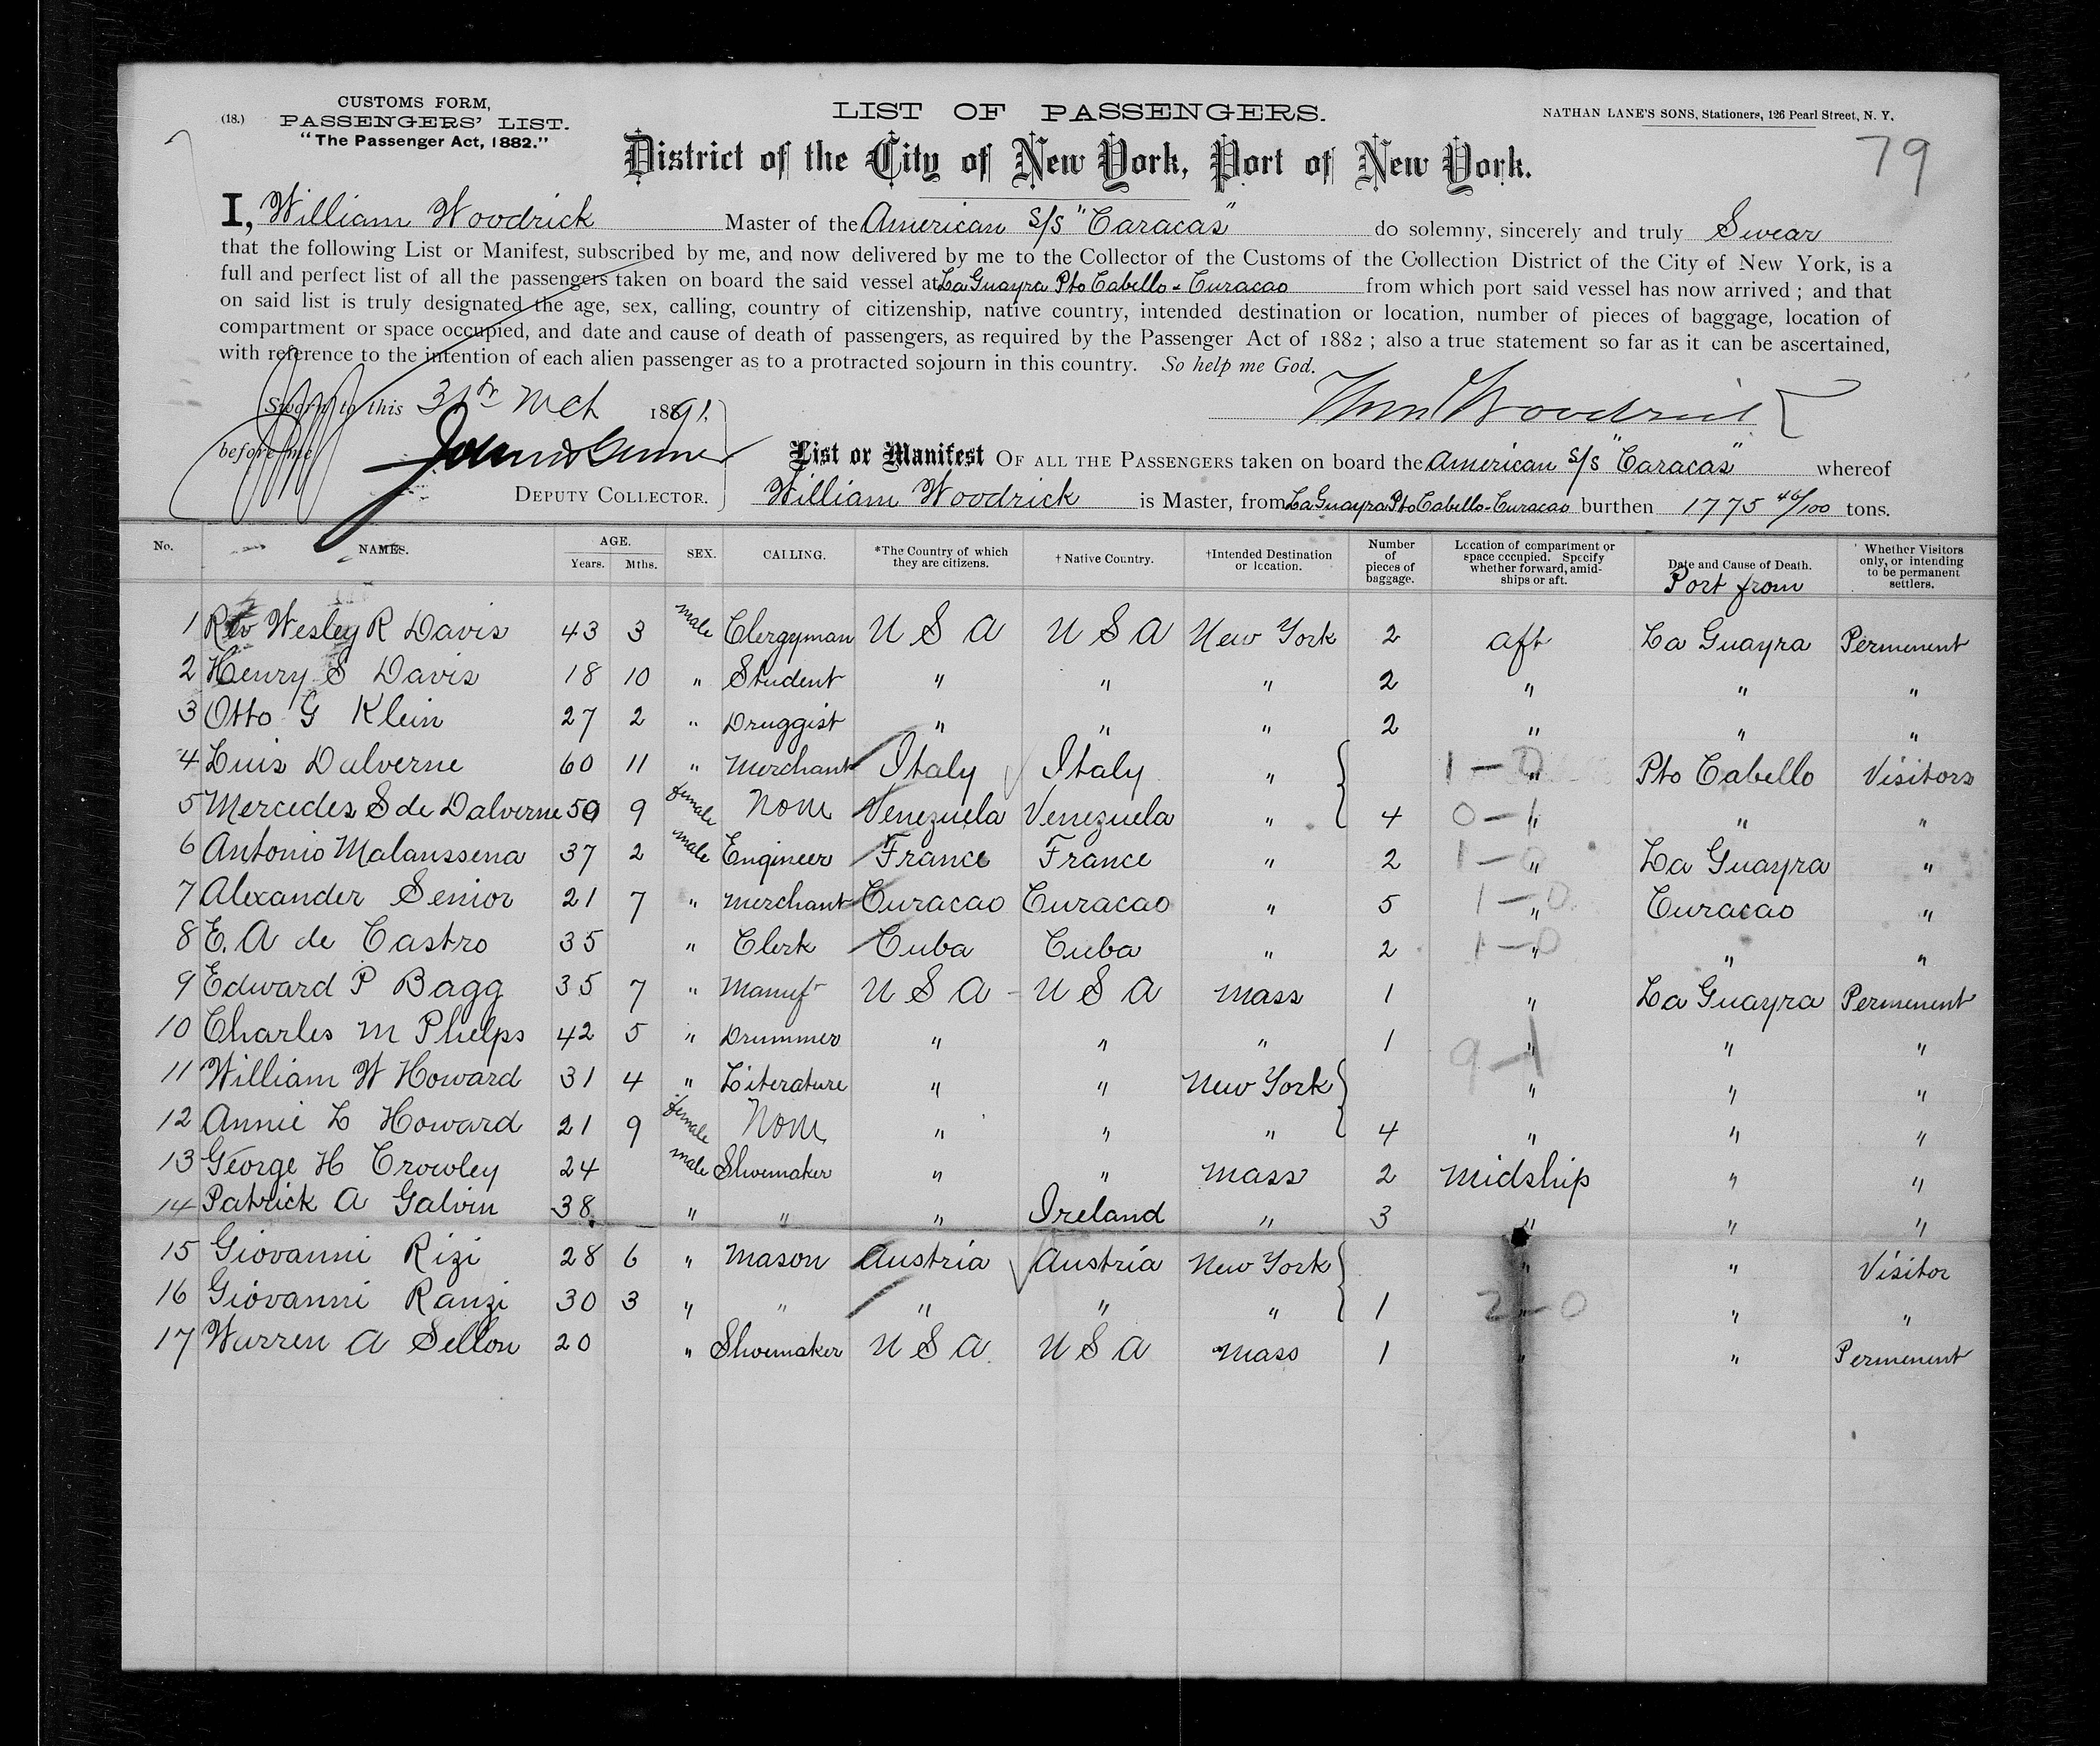 (18.)
CUSTOMS FORM,
PASSENGERS' LIST.
"The Passenger Act, 1882."
LIST OF PASSENGERS.
NATHAN LANE'S SONS, Stationers, 126 Pearl Street, N. Y.
79
District of the City of New York, Port of New York.
I, William Woodrick Master of the American S/S "Caracas" do solemny, sincerely and truly Swear
that the following List or Manifest, subscribed by me, and now delivered by me to the Collector of the Customs of the Collection District of the City of New York, is a
full and perfect list of all the passengers taken on board the said vessel at La Guayra Pto Cabello - Curacao from which port said vessel has now arrived ; and that
on said list is truly designated the age, sex, calling, country of citizenship, native country, intended destination or location, number of pieces of baggage, location of
compartment or space occupied, and date and cause of death of passengers, as required by the Passenger Act of 1882 ; also a true statement so far as it can be ascertained,
with reference to the intention of each alien passenger as to a protracted sojourn in this country. So help me God.
Sworn to this 31st Mch 1891. Wm Woodrick
before me
DEPUTY COLLECTOR.
List or Manifest OF ALL THE PASSENGERS taken on board the American S/S "Caracas" whereof
William Woodrick is Master, from La Guayra Pto Cabello - Curacao burthen 1775 46/100 tons.
No. NAMES. AGE. Years. Mths. SEX. CALLING. *The Country of which they are citizens. † Native Country. †Intended Destination or location. Number of pieces of baggage. Location of compartment or space occupied. Specify whether forward, amidships or aft. Date and Cause of Death. Port from Whether Visitors only, or intending to be permanent settlers.
1 Rev Wesley R Davis 43 3 male Clergyman U S A U S A New York 2 aft La Guayra Permenent
2 Henry S Davis 18 10 " Student " " " 2 " " "
3 Otto G Klein 27 2 " Druggist " " " 2 " " "
4 Luis Dalverne 60 11 " Merchant Italy Italy " 1-0 " Pto Cabello Visitors
5 Mercedes S de Dalverne 50 9 female None Venezuela Venezuela " 4 0-1 " " "
6 Antonio Malaussena 37 2 male Engineer France France " 2 1-0 " La Guayra "
7 Alexander Senior 21 7 " Merchant Curacao Curacao " 5 1-0 " Curacao "
8 E. A de Castro 35 " Clerk Cuba Cuba " 2 1-0 " " "
9 Edward P Bagg 35 7 " Manuf- U S A - U S A Mass 1 " La Guayra Permenent
10 Charles M Phelps 42 5 " Drummer " " " 1 " " "
9-1
11 William W Howard 31 4 " Literature " " New York " " "
12 Annie L Howard 21 9 female None " " " 4 " " "
13 George H Crowley 24 male Shoemaker " " Mass 2 Midship " "
14 Patrick A Galvin 38 " " " Ireland " 3 " " "
15 Giovanni Rizi 28 6 " Mason Austria Austria New York " " Visitor
16 Giovanni Ranzi 30 3 " " " " " 1 2-0 " " "
17 Warren A Sellon 20 " Shoemaker U S A U S A Mass 1 " " Permenent